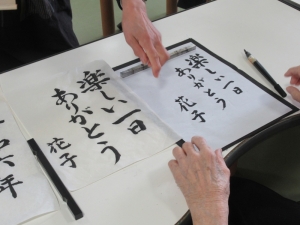 楽しい一日
ありがとう
花子
楽しい一日
ありがとう
花子